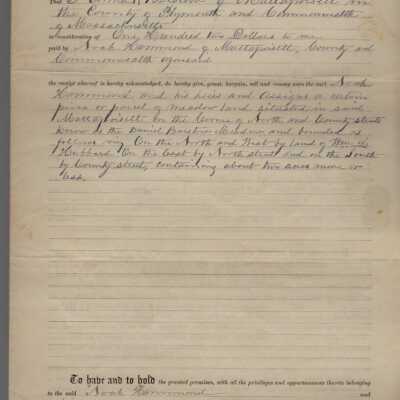 the County of Plymouth and Commonwealth
of Massachusetts
in consideration of One Hundred two Dollars to me
paid by Noah Hammond of Mattapoisett, County and
Commonwealth aforesaid
the receipt whereof is hereby acknowledged, do hereby give, grant, bargain, sell and convey unto the said Noah
Hammond and his heirs and assigns a certain
piece or parcel of meadow land situated in said
Mattapoisett on the Corner of North and County streets
know as the Daniel Barstow Meadow and bounded as
follows viz, On the North and West by land of
Hubbard On the East by North street And on the South
by County street, containing about two acres more or
less
To have and to hold the granted premises, with all the privileges and appurtenances thereto belonging
to the said Noah Hammond and